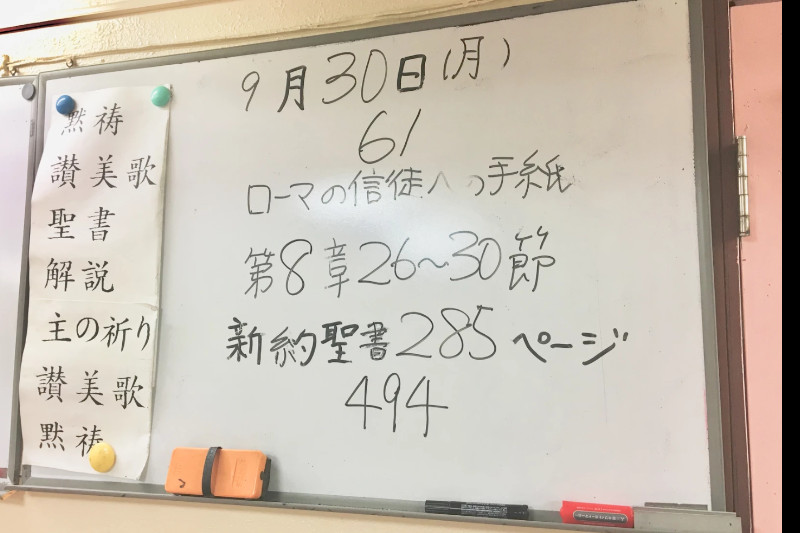 黙祷
讃美歌
聖書
解説
主の祈り
讃美歌
黙祷
9月30日(月)
61
ローマの信徒への手紙
第8章26~30節
新約聖書285ページ
494